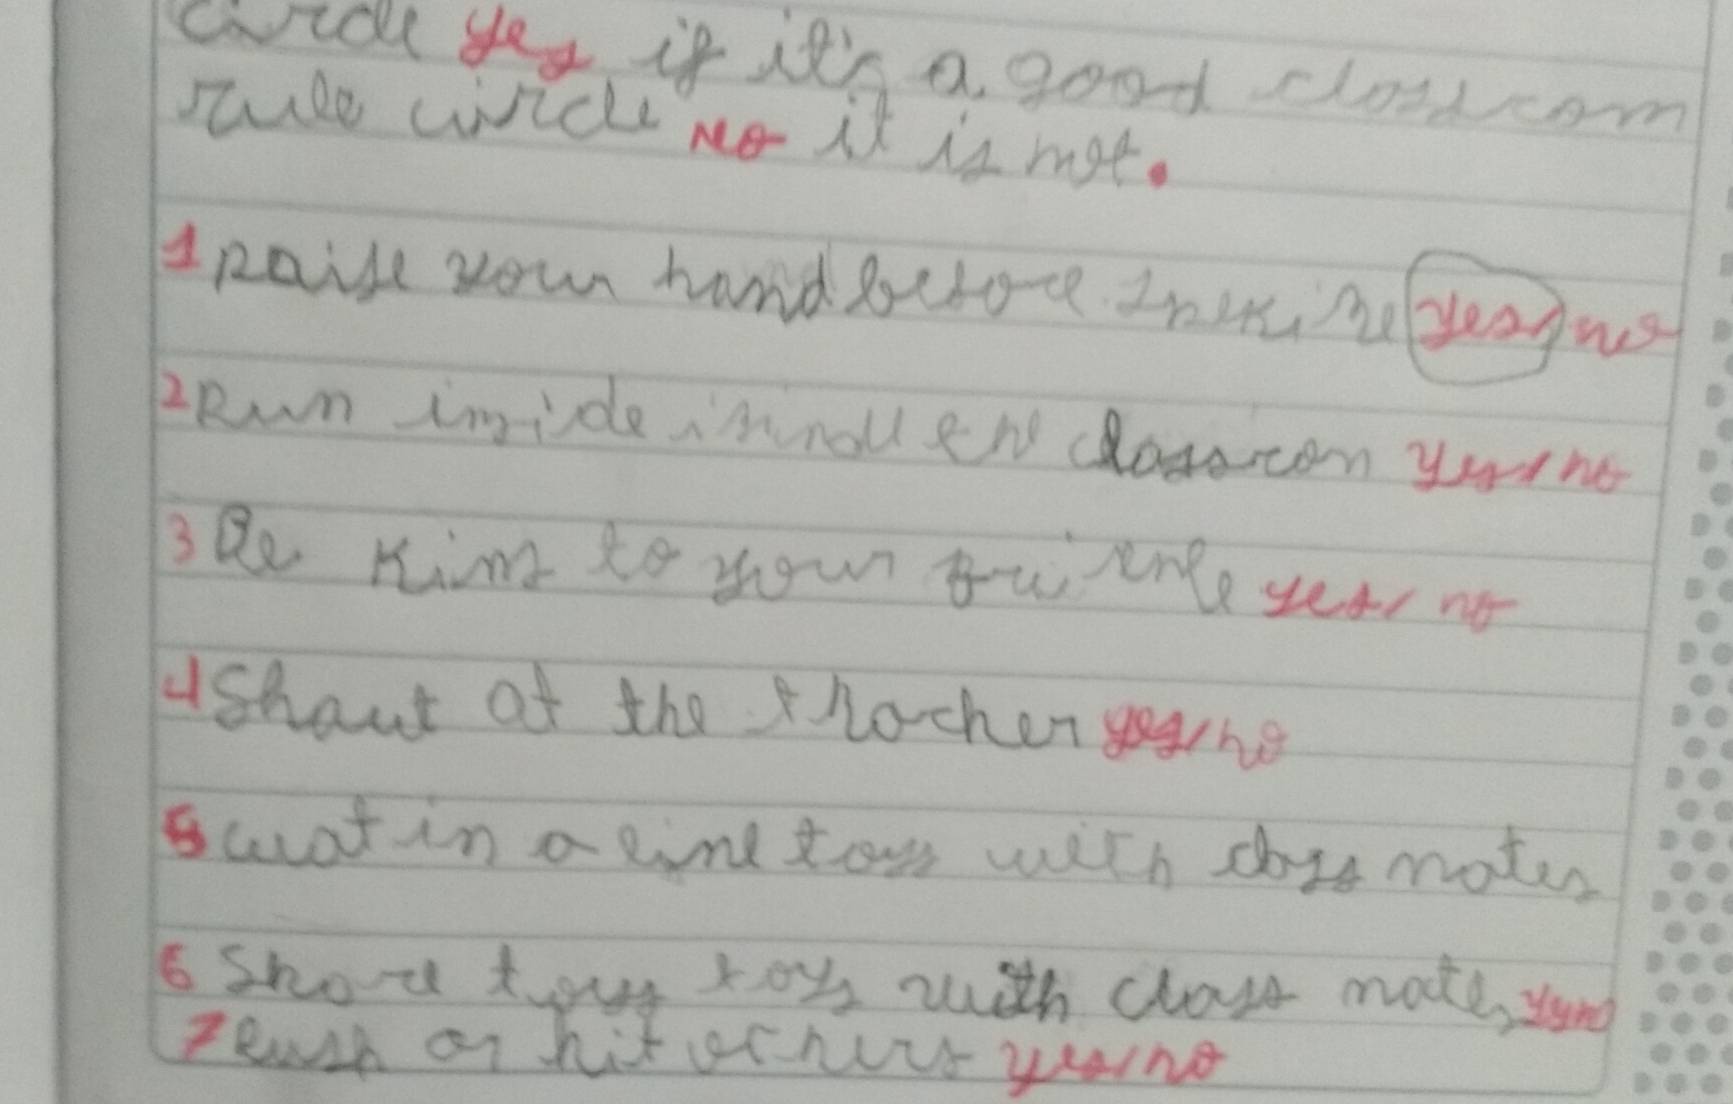 circle yes if it's a good classroom
rule circle No it is not.
1 Raise your hand before yes/no
2 Run inside classroom yes/no
3 Be Kind to your yes/no
4 Shout at the yes/no
5 wat in a line toys with class mates
6 Share toys toys with class mates
7 Push or hit others yes/no